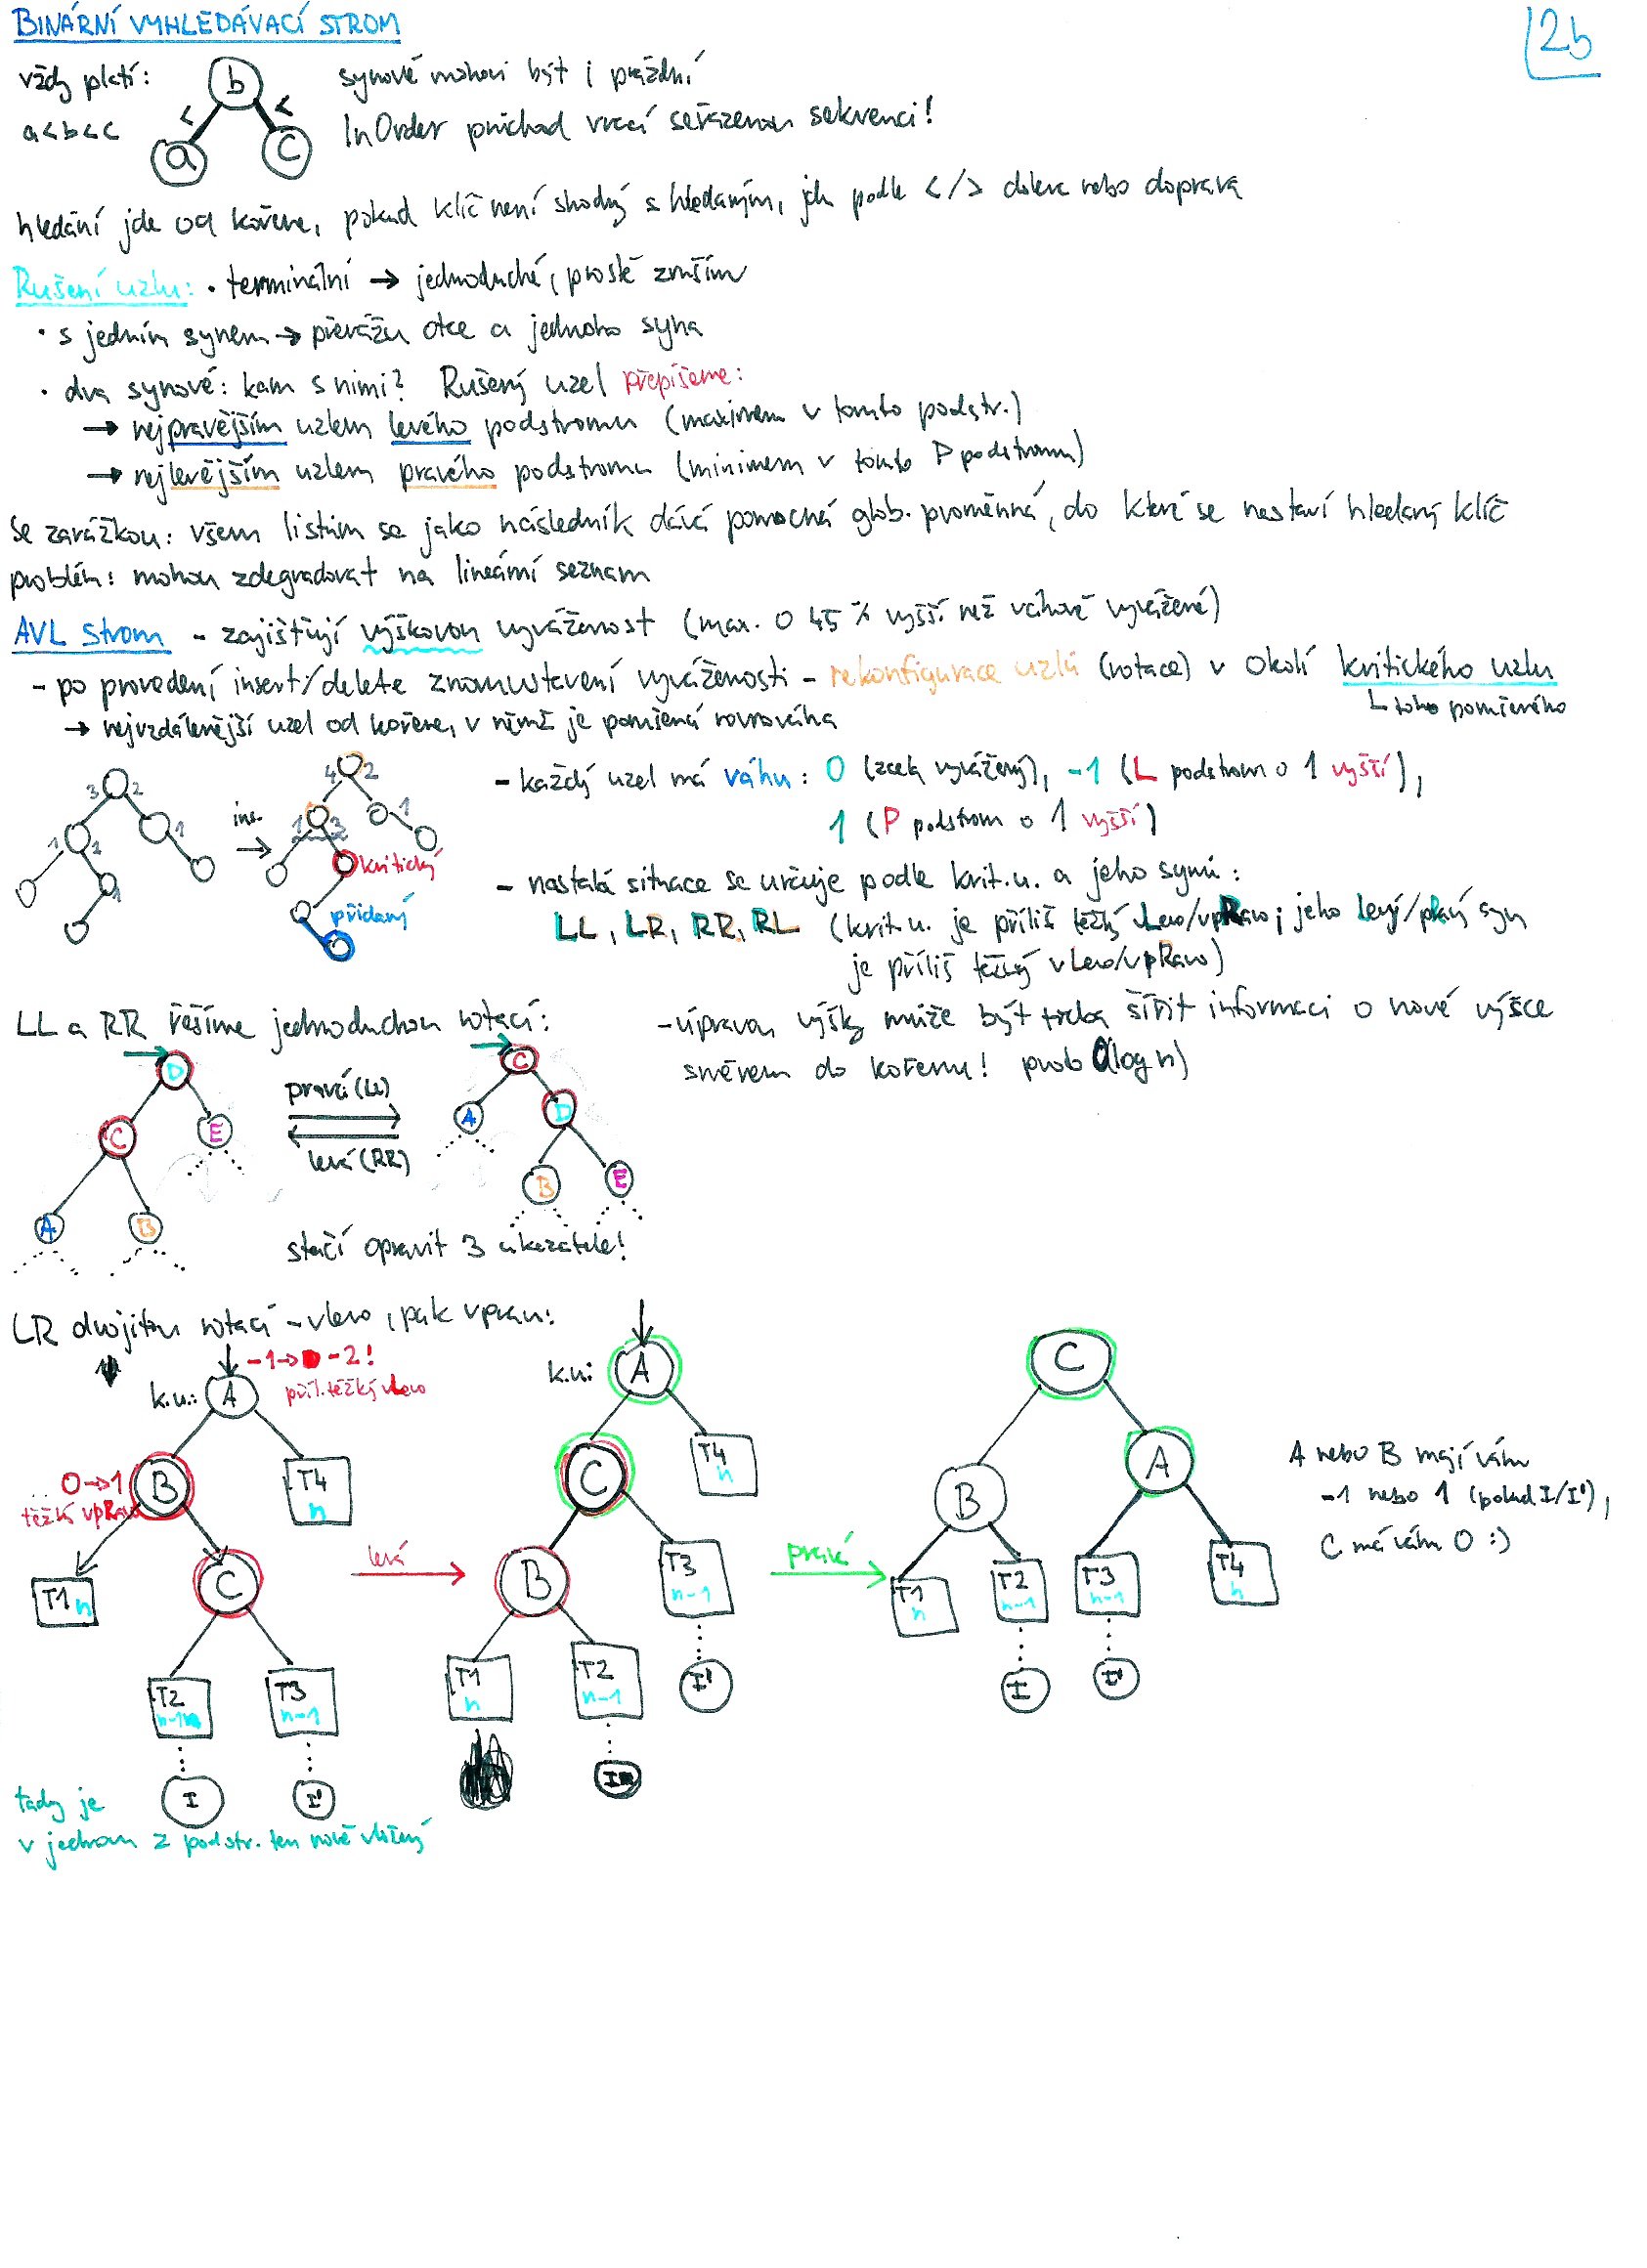 BINÁRNÍ VYHLEDÁVACÍ STROM
2b
vždy platí:
a<b<c
b
< <
a c
synové mohou být i prázdní
InOrder průchod vrací seřazenou sekvenci!
hledání jde od kořene, pokud klíč není shodný s hledaným, jdu podle </> doleva nebo doprava
Rušení uzlu: • terminální → jednoduché, prostě zruším
• s jedním synem → převážu otce a jednoho syna
• dva synové: kam s nimi? Rušený uzel přepíšeme:
→ nejpravějším uzlem levého podstromu (maximem v tomto podstr.)
→ nejlevějším uzlem pravého podstromu (minimem v tomto P podstromu)
Se zarážkou: všem listům se jako následník dává pomocná glob. proměnná, do které se nastaví hledaný klíč
problém: mohou zdegradovat na lineární seznam
AVL strom - zajišťují výškovou vyváženost (max. o 45 % vyšší než váhově vyvážené)
- po provedení insert/delete znovuustavení vyváženosti - rekonfigurace uzlů (rotace) v okolí kritického uzlu
→ nejvzdálenější uzel od kořene, v němž je porušená rovnováha
toho porušeného
3 2
1 1 1
1
ins.
→
4 2
1 3 1
kritický
přidaný
- každý uzel má váhu: 0 (zcela vyvážený), -1 (L podstrom o 1 vyšší),
1 (P podstrom o 1 vyšší)
- nastalá situace se určuje podle krit.u. a jeho synů:
LL, LR, RR, RL (krit.u. je příliš těžký vLevo/vpRavo; jeho levý/pravý syn
je příliš těžký vLevo/vpRavo)
LL a RR řešíme jednoduchou rotací:
- úpravou výšky může být třeba šířit informaci o nové výšce
směrem do kořenu! prob O(log n)
D
C E
A B
pravá (LL)
levá (RR)
C
A D
B E
stačí opravit 3 ukazatele!
LR dvojitou rotací - vlevo, pak vpravo:
k.u.: A -1 → -2!
příl. těžký vLevo
0→1 B
těžký vpRavo
T4 n
T1 n
C
T2 n-1
T3 n-1
I I'
tady je
v jednom z podstr. ten nově vložený
levá
k.u.: A
C
T4 n
B
T3 n-1
T1 n
T2 n-1
I'
I
pravá
C
B A
T1 n
T2 n-1
T3 n-1
T4 n
I I'
A nebo B mají váhu
-1 nebo 1 (pokud I/I'),
C má váhu 0 :)